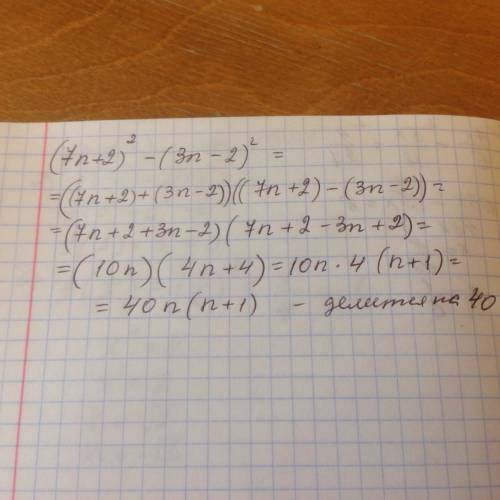 (7n+2)² -(3n-2)² =
=((7n+2)+(3n-2))((7n+2)-(3n-2))=
=(7n+2+3n-2)(7n+2-3n+2)=
=(10n)(4n+4)=10n·4(n+1)=
= 40n(n+1) - делится на 40